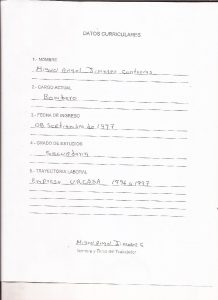 DATOS CURRICULARES
1.- NOMBRE
Miguel Angel Jimenez Contreras
2.- CARGO ACTUAL
Bombero
3.- FECHA DE INGRESO
08 Septiembre de 1997
4.- GRADO DE ESTUDIOS
Secundaria
5.- TRAYECTORIA LABORAL
Empresa 1996 a 1997
Miguel Angel Jimenez C
Nombre y Firma del Trabajador